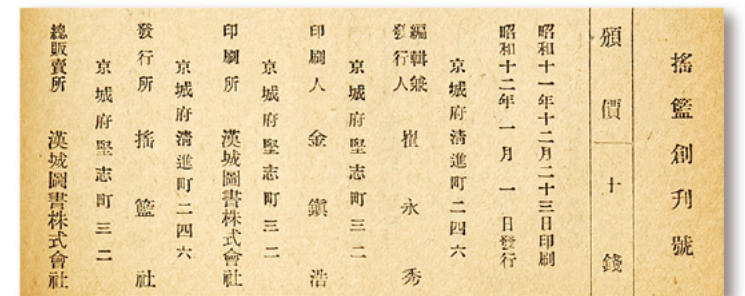 搖籃創刊號
頒價 十錢
昭和十一年十二月二十三日印刷
昭和十二年一月一日發行
京城府淸進町二四六
編輯兼發行人 崔永秀
京城府堅志町三二
印刷人 金鎭浩
京城府堅志町三二
印刷所 漢城圖書株式會社
京城府淸進町二四六
發行所 搖籃社
京城府堅志町三二
總販賣所 漢城圖書株式會社